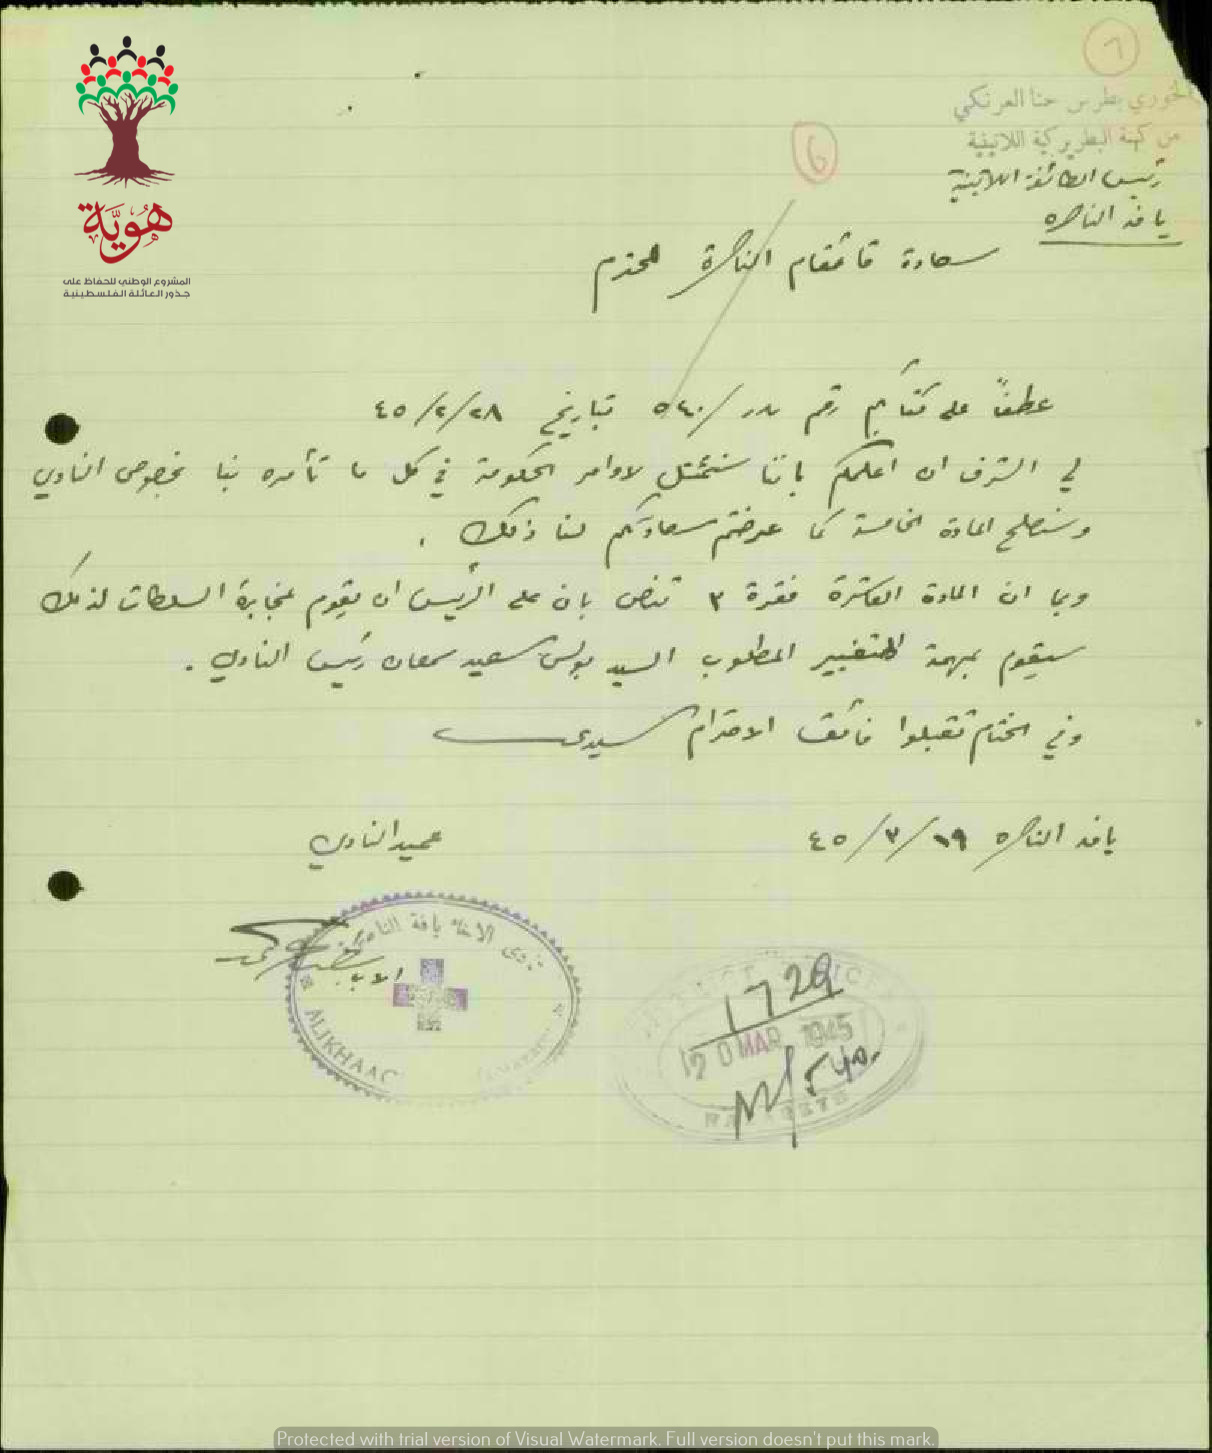 هُويَّة
المشروع الوطني للحفاظ على
جذور العائلة الفلسطينية
٦
6
الخوري بطرس حنا العرنكي
من كهنة البطريركية اللاتينية
رئيس الطائفة اللاتينية
يافة الناصرة
سعادة قائمقام الناصرة المحترم
عطفاً على كتابكم رقم ٥٤٠/ بتاريخ ٤٥/٢/٢٨
لي الشرف ان اعلمكم باننا سنمتثل لاوامر الحكومة في كل ما تأمره بخصوص النادي
وسنصلح المادة الخامسة كما عرضتم سعادتكم لنا ذلك .
وبما ان المادة العاشرة فقرة ٣ تنص بان على الرئيس ان يقوم بمخابرة السلطات لذلك
سيقوم بمهمة التغيير المطلوب السيد بولس سعيد سمعان رئيس النادي .
وفي الختام تقبلوا فائق الاحترام سيدي
يافة الناصرة ٤٥/٣/١٩
عميد النادي
نادي الاخاء يافة الناصرة
الاب
ALIKHAA
1729
20 MAR 1945
N/540
NAZARETH
Protected with trial version of Visual Watermark. Full version doesn't put this mark.